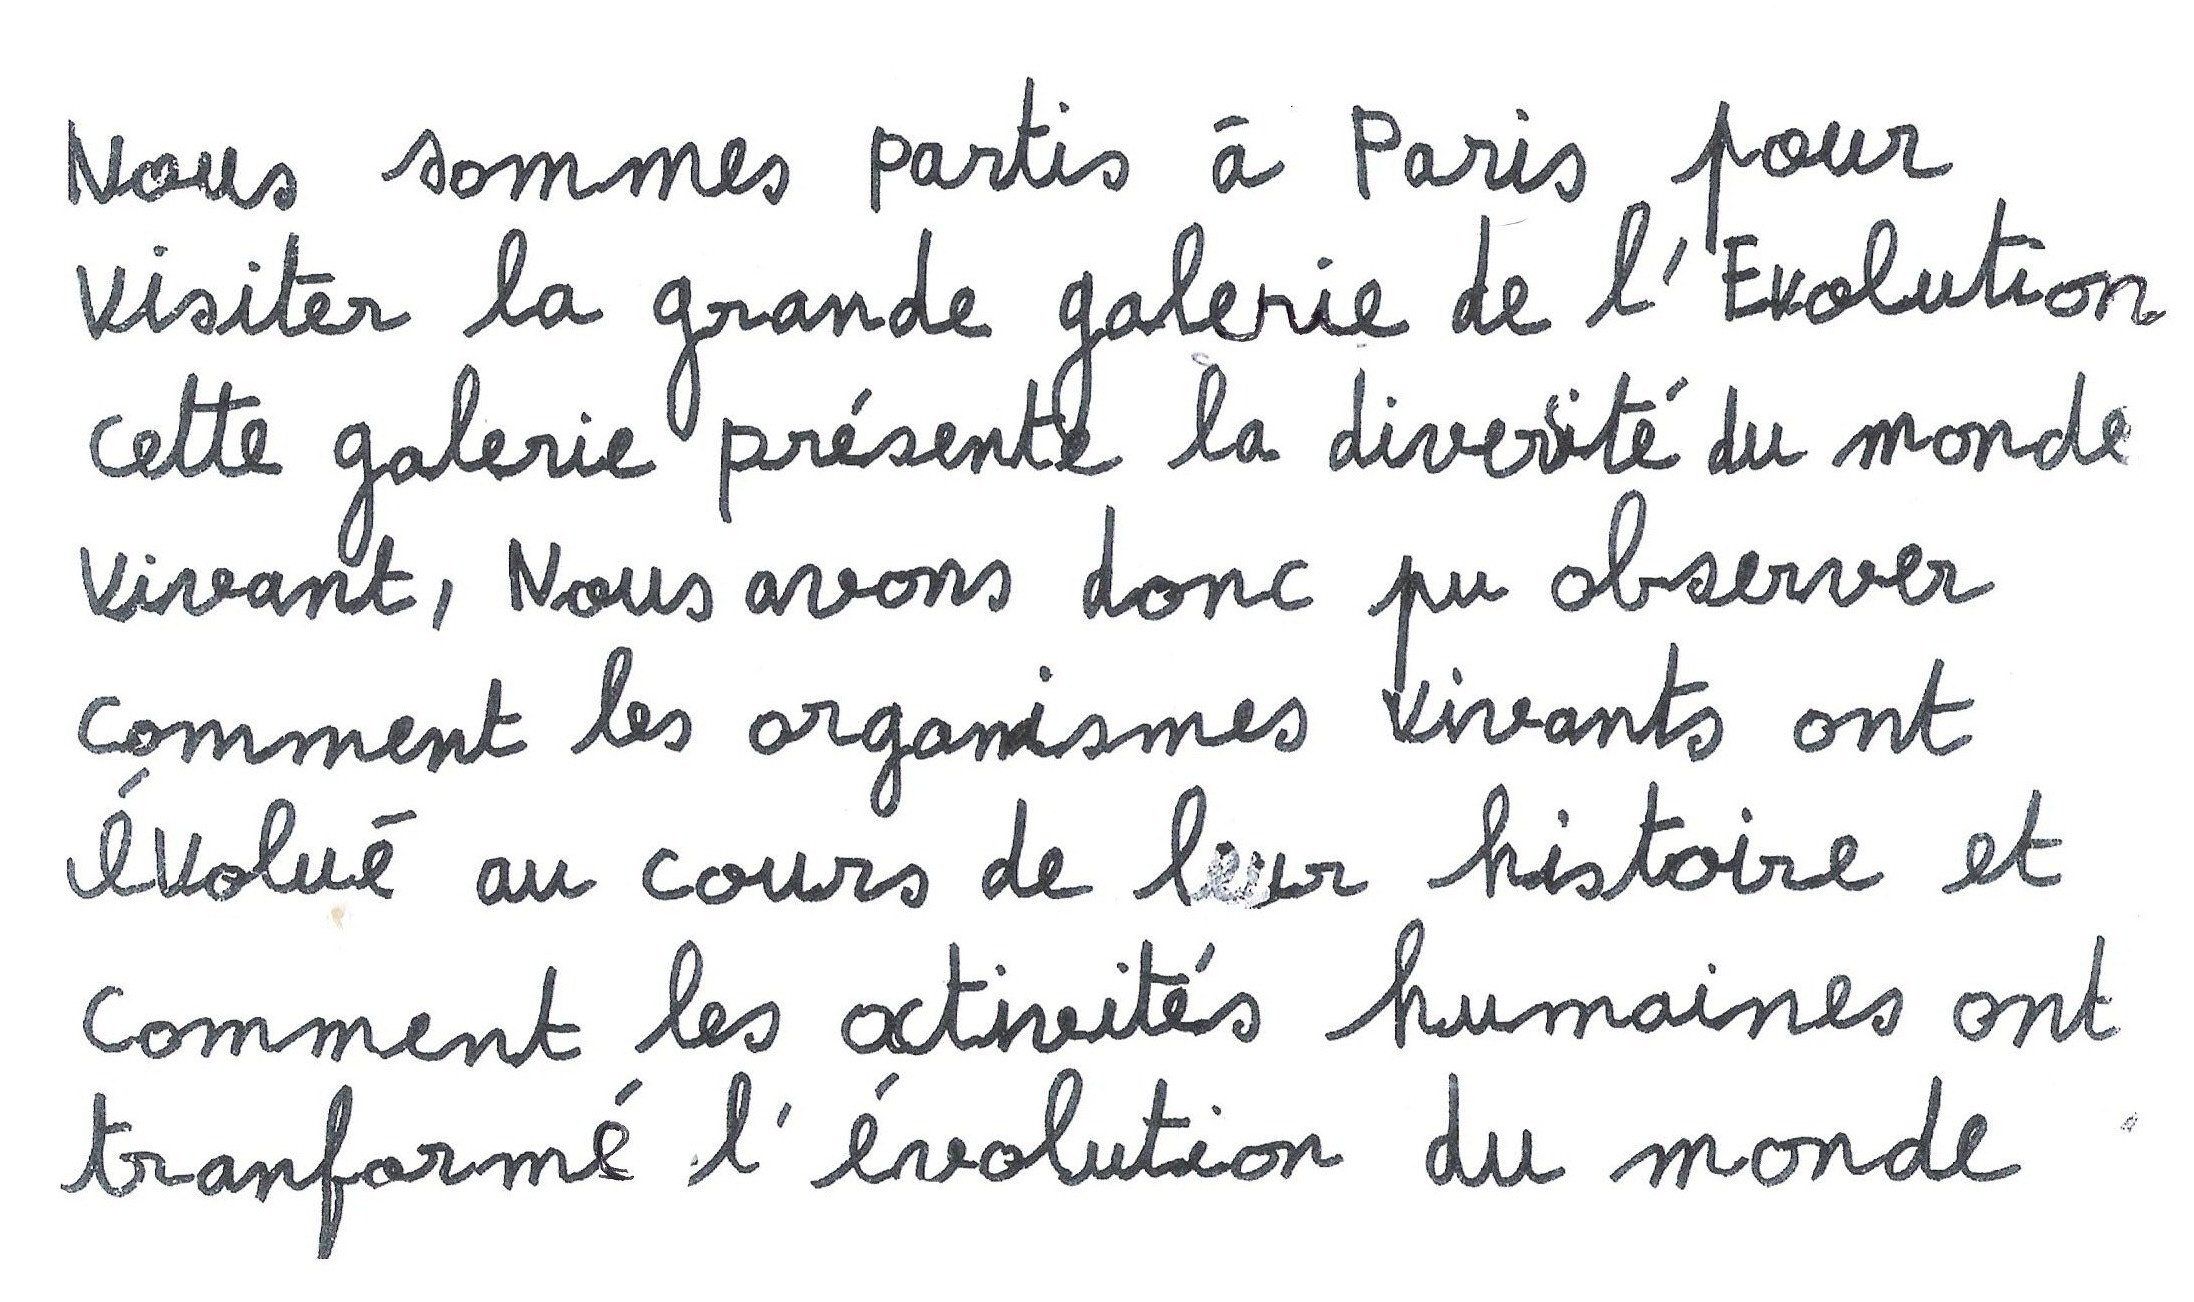 Nous sommes partis à Paris pour
visiter la grande galerie de l'Evolution
cette galerie présente la diversité du monde
vivant, Nous avons donc pu observer
comment les organismes vivants ont
évolué au cours de leur histoire et
comment les activités humaines ont
tranformé l'évolution du monde